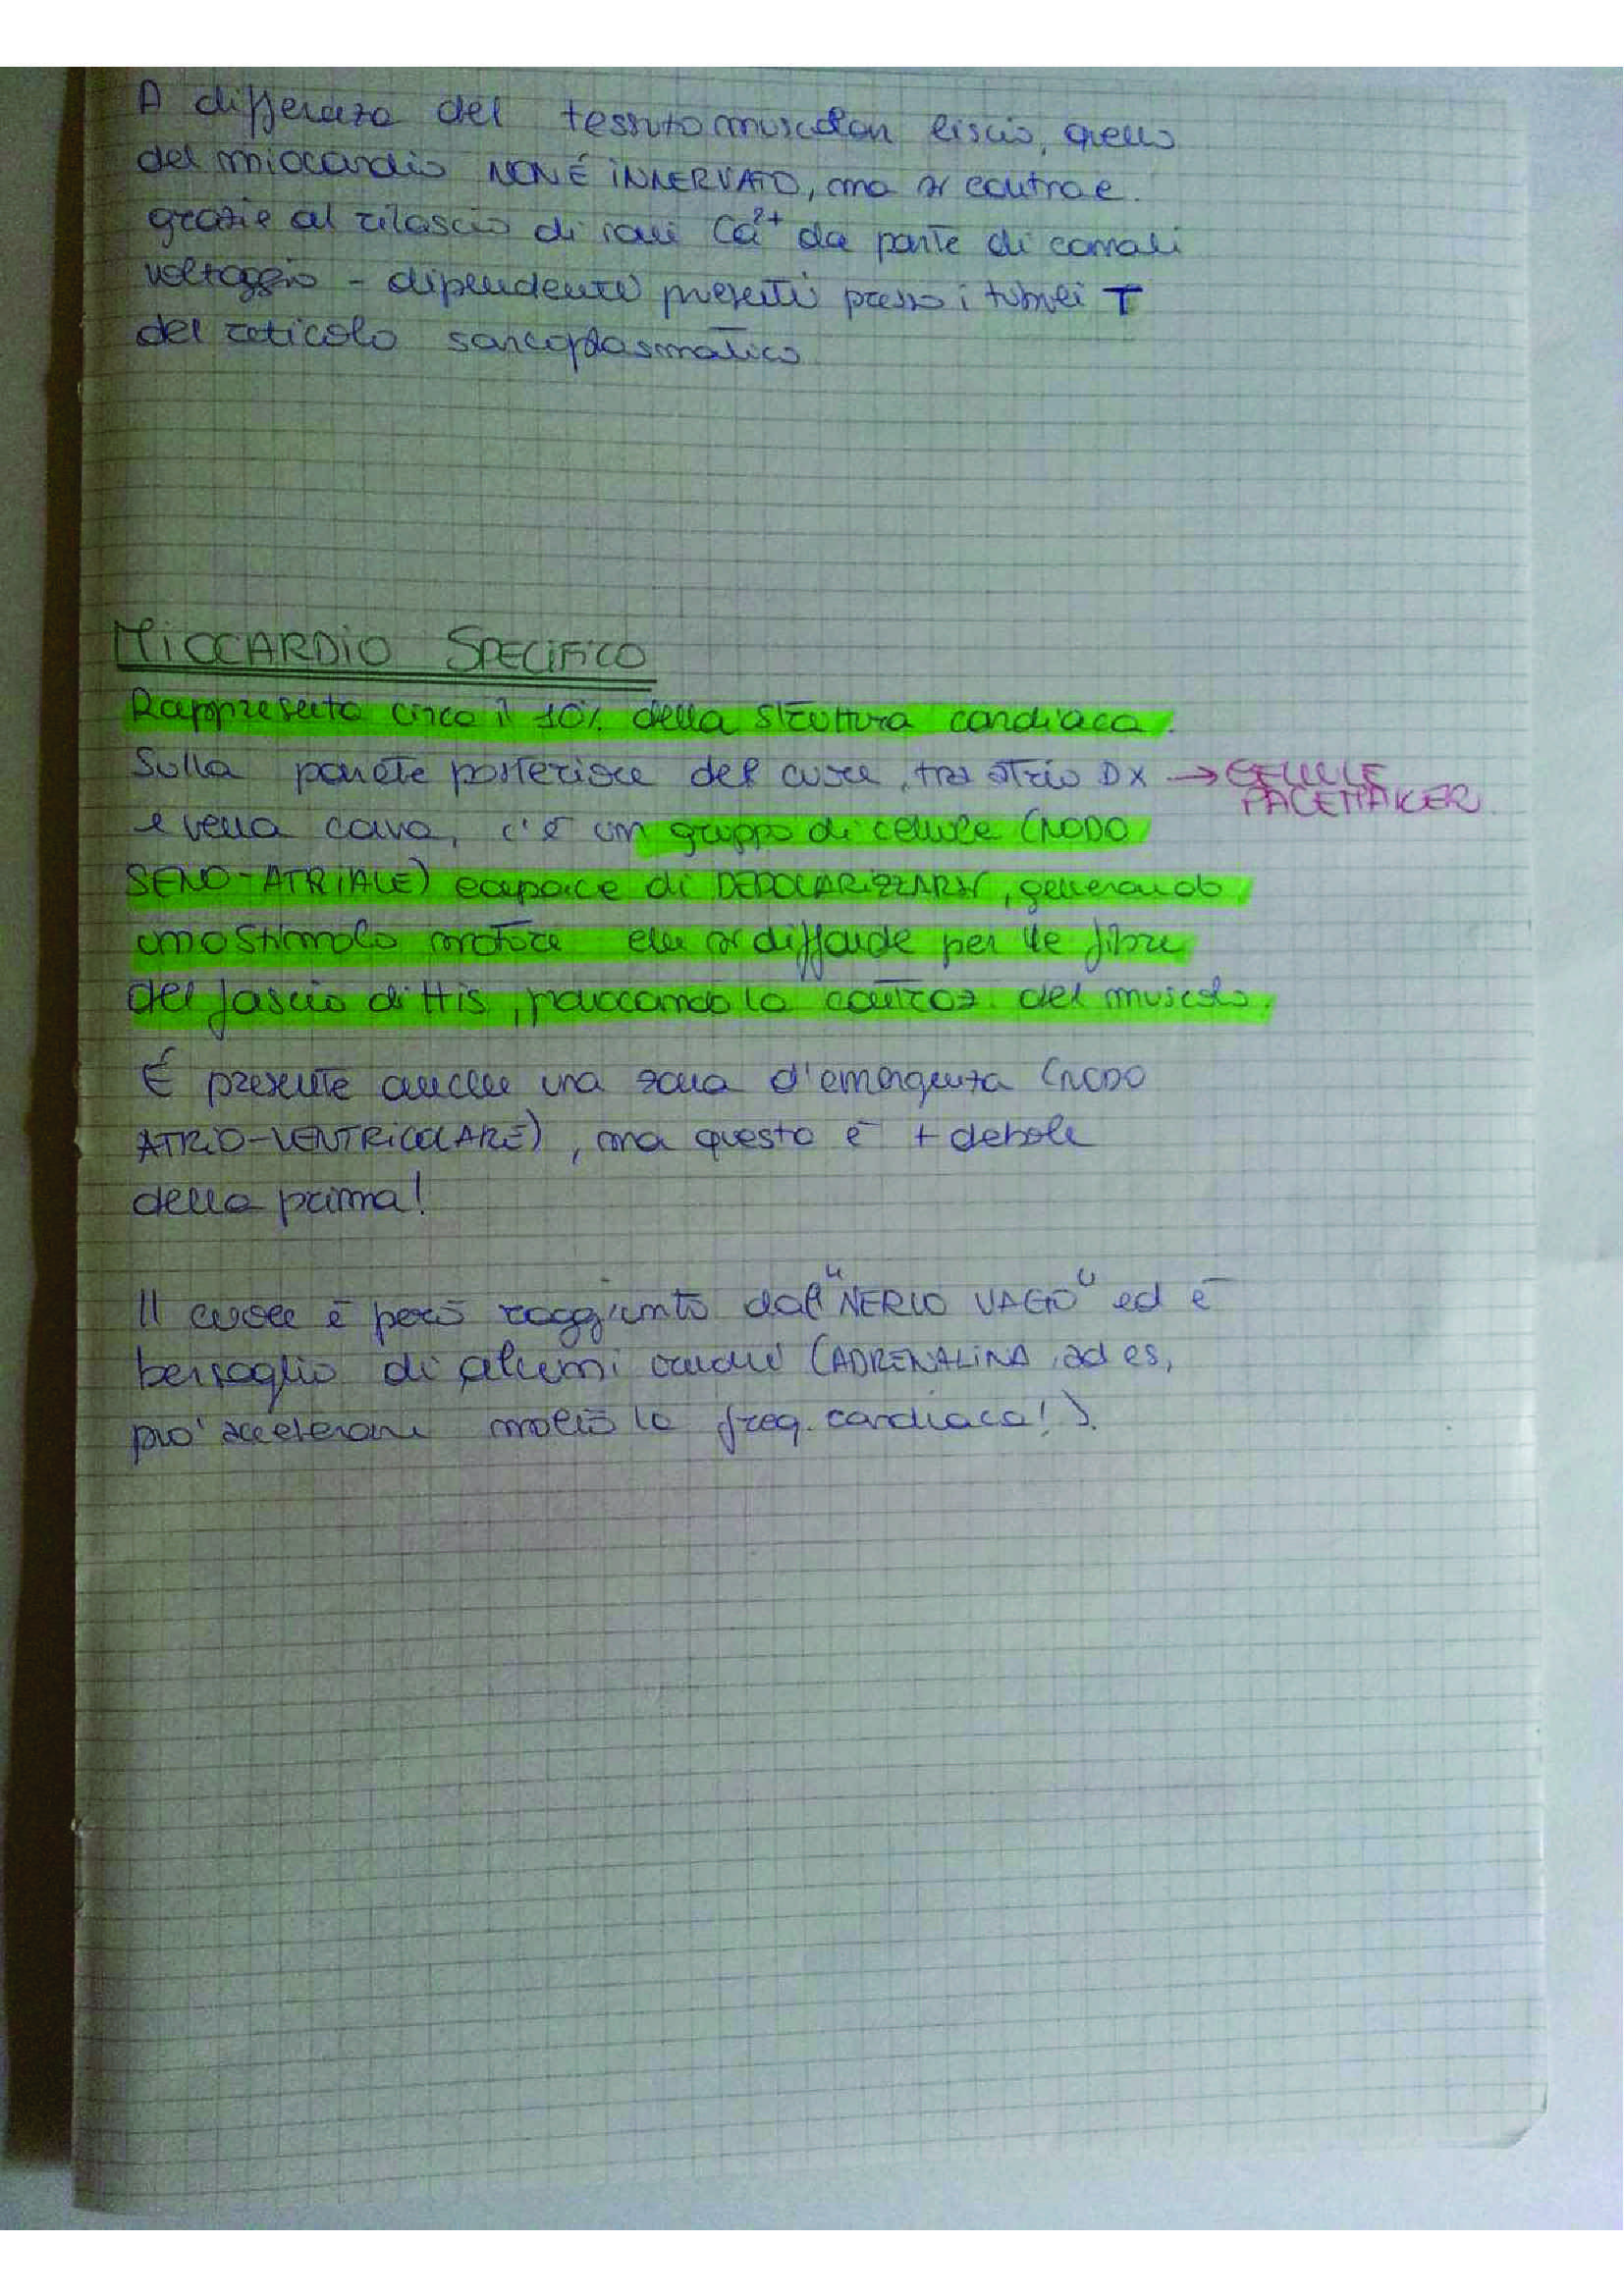 A differenza del tessuto muscolare liscio, quello
del miocardio NON É INNERVATO, ma si contrae
grazie al rilascio di ioni Ca²⁺ da parte di canali
voltaggio - dipendente presenti presso i tubuli T
del reticolo sarcoplasmatico
MIOCARDIO SPECIFICO
Rappresenta circa il 10% della struttura cardiaca.
Sulla parete posteriore del cuore, tra atrio DX → CELLULE
PACEMAKER
e vena cava, c'è un gruppo di cellule (NODO
SENO-ATRIALE) capace di DEPOLARIZZARSI, generando
uno stimolo motore che si diffonde per le fibre
del fascio di His, provocando la contraz. del muscolo.
É presente anche una zona d'emergenza (NODO
ATRIO-VENTRICOLARE), ma questo è + debole
della prima!
Il cuore è però raggiunto dal "NERVO VAGO" ed è
bersaglio di alcuni (ADRENALINA, ad es,
può accelerare molto la freq. cardiaca!).